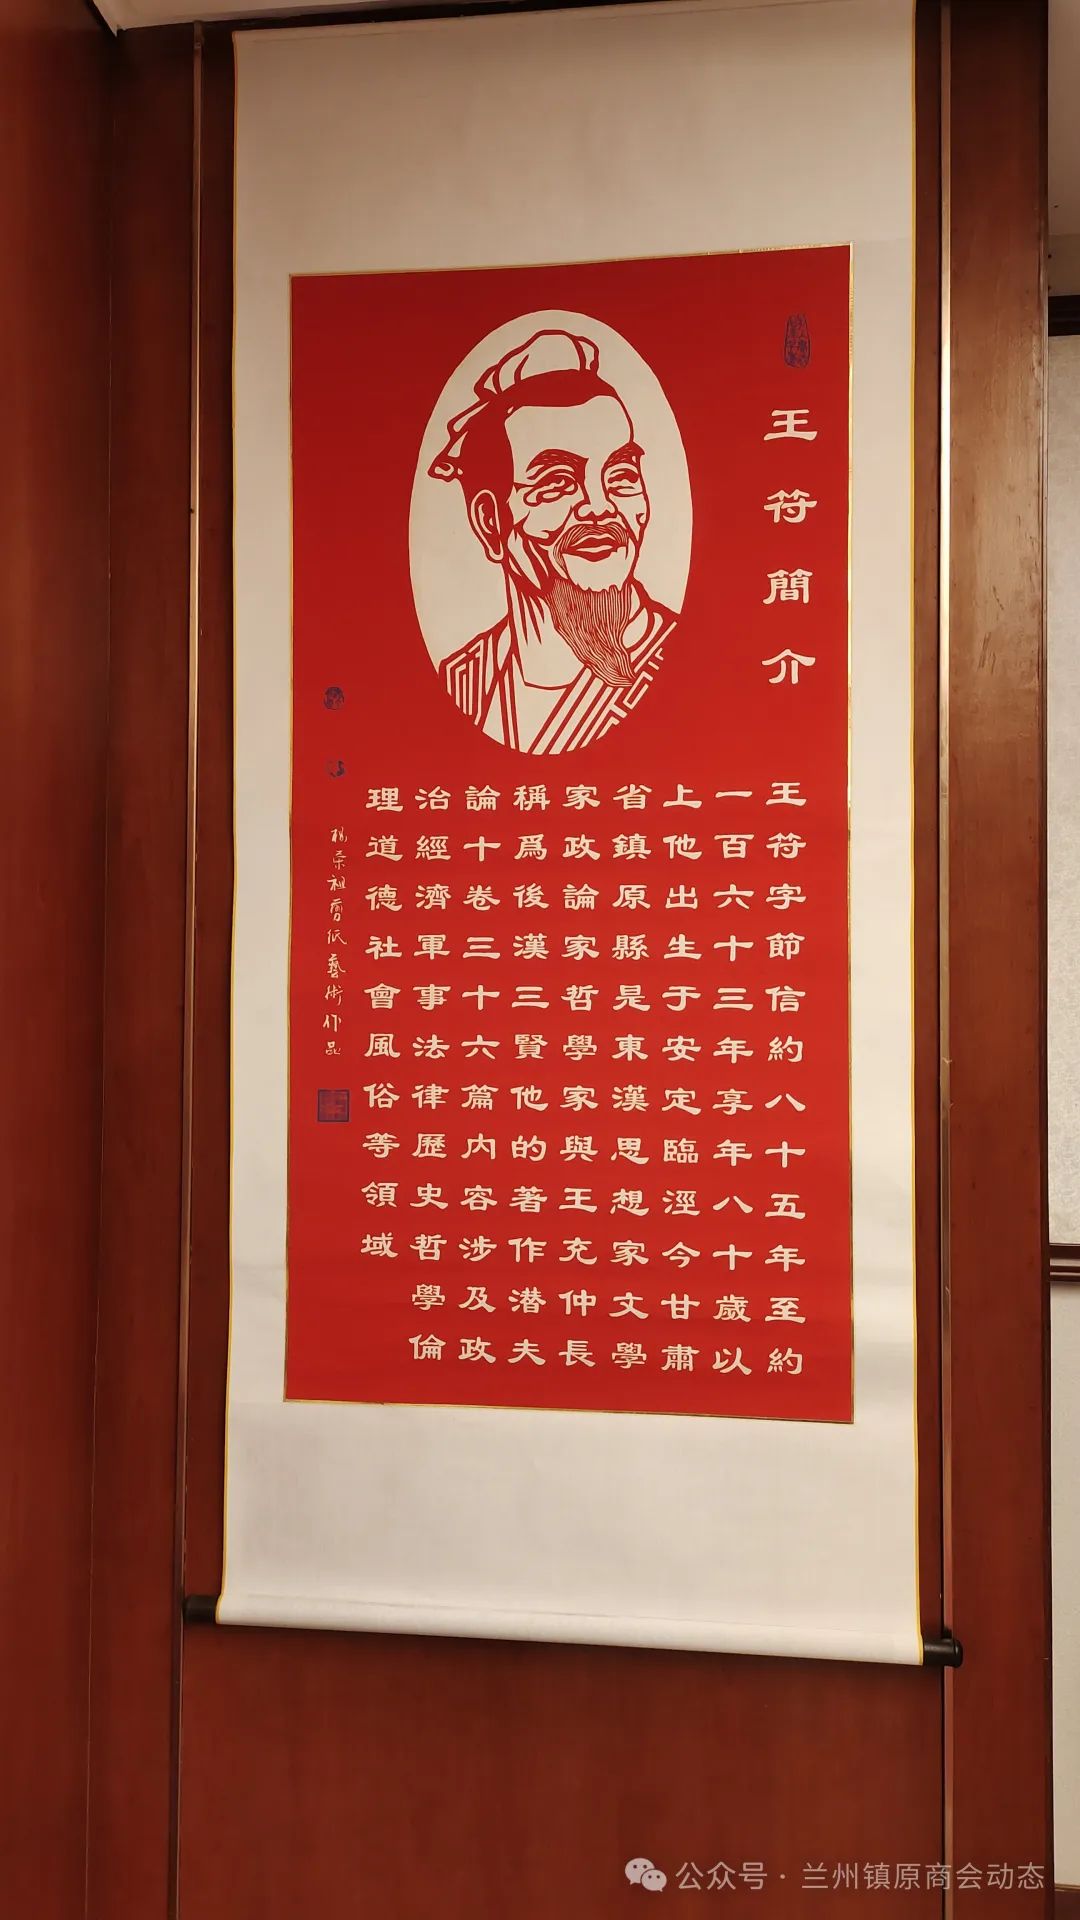 王符簡介
王符字節信約八十五年至約
一百六十三年享年八十歲以
上他出生于安定臨涇今甘肅
省鎮原縣是東漢思想家文學
家政論家哲學家與王充仲長
稱爲後漢三賢他的著作潛夫
論十卷三十六篇内容涉及政
治經濟軍事法律歷史哲學倫
理道德社會風俗等領域
祖剪紙藝術作品
公众号·兰州镇原商会动态